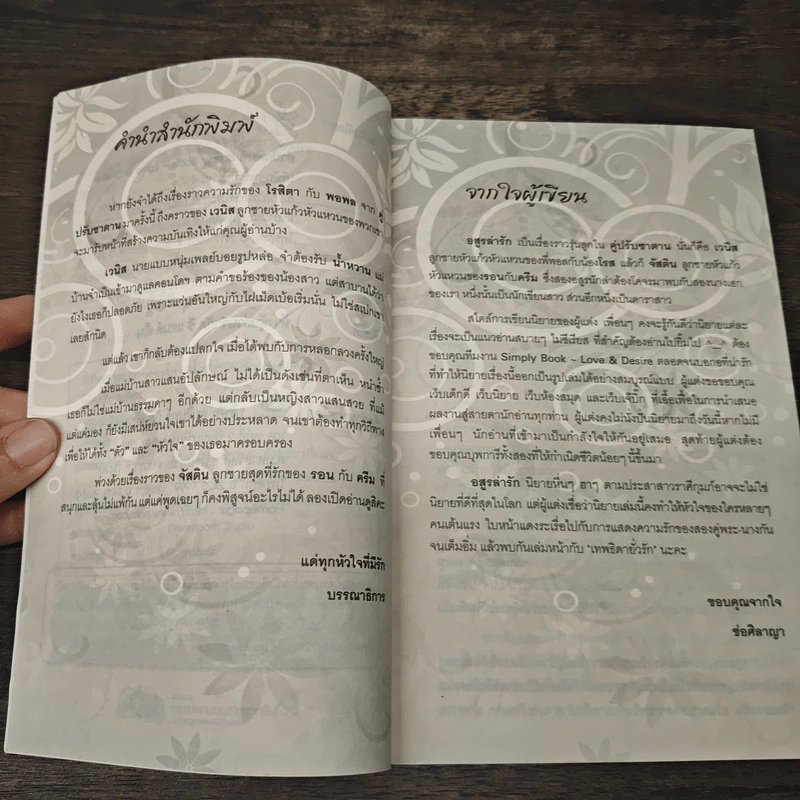 คำนำสำนักพิมพ์
หากยังจำได้ถึงเรื่องราวความรักของ โรสิตา กับ พอพล จาก คู่
ปรับซาตาน มาครั้งนี้ ถึงคราวของ เวนิส ลูกชายหัวแก้วหัวแหวนของพวกเขา
จะมารับหน้าที่สร้างความบันเทิงให้แก่คุณผู้อ่านบ้าง
เวนิส นายแบบหนุ่มเพลย์บอยรูปหล่อ จำต้องรับ น้ำหวาน แม่
บ้านจำเป็นเข้ามาดูแลคอนโดฯ ตามคำขอร้องของน้องสาว แต่สาบานได้ว่า
ยังไงเธอก็ปลอดภัย เพราะแว่นอันใหญ่กับไฝเม็ดเบ้อเริ่มนั่น ไม่ใช่สเปกเขา
เลยสักนิด
แต่แล้วเขาก็กลับต้องแปลกใจ เมื่อได้พบกับการหลอกลวงครั้งใหญ่
เมื่อแม่บ้านสาวแสนอัปลักษณ์ ไม่ได้เป็นดังเช่นที่ตาเห็น หน้าซ้ำ
เธอก็ไม่ใช่แม่บ้านธรรมดาๆ อีกด้วย แต่กลับเป็นหญิงสาวแสนสวย ที่แม้
แต่แค่มอง ก็ยังมีเสน่ห์ยวนใจเขาได้อย่างประหลาด จนเขาต้องทำทุกวิถีทาง
เพื่อให้ได้ทั้ง "ตัว" และ "หัวใจ" ของเธอมาครอบครอง
พ่วงด้วยเรื่องราวของ จัสติน ลูกชายสุดที่รักของ รอน กับ ครีม ที่
สนุกและลุ้นไม่แพ้กัน แต่แค่พูดเฉยๆ ก็คงพิสูจน์อะไรไม่ได้ ลองเปิดอ่านดูสิคะ
แด่ทุกหัวใจที่มีรัก
บรรณาธิการ
จากใจผู้เขียน
อสูรล่ารัก เป็นเรื่องราวรุ่นลูกใน คู่ปรับซาตาน นั่นก็คือ เวนิส
ลูกชายหัวแก้วหัวแหวนของพี่พอลกับน้องโรส แล้วก็ จัสติน ลูกชายหัวแก้ว
หัวแหวนของรอนกับครีม ซึ่งสองอสูรนักล่าต้องโคจรมาพบกับสองนางเอก
ของเรา หนึ่งนั้นเป็นนักเขียนสาว ส่วนอีกหนึ่งเป็นดาราสาว
สไตล์การเขียนนิยายของผู้แต่ง เพื่อนๆ คงจะรู้กันดีว่านิยายแต่ละ
เรื่องจะเป็นแนวอ่านสบายๆ ไม่ซีเรียส ที่สำคัญต้องอ่านไปยิ้มไป ^_^ ต้อง
ขอบคุณทีมงาน Simply Book ~ Love & Desire ตลอดจนบอกอที่น่ารัก
ที่ทำให้นิยายเรื่องนี้ออกเป็นรูปเล่มได้อย่างสมบูรณ์แบบ ผู้แต่งขอขอบคุณ
เว็บเด็กดี เว็บนิยาย เว็บห้องสมุด และเว็บเจ๊บิ๊ก ที่เอื้อเฟื้อในการนำเสนอ
ผลงานสู่สายตานักอ่านทุกท่าน ผู้แต่งคงไม่นั่งปั่นนิยายมาถึงวันนี้หากไม่มี
เพื่อนๆ นักอ่านที่เข้ามาเป็นกำลังใจให้กันอยู่เสมอ สุดท้ายผู้แต่งต้อง
ขอบคุณบุพการีทั้งสองที่ให้กำเนิดชีวิตน้อยๆ นี้ขึ้นมา
อสูรล่ารัก นิยายหื่นๆ ฮาๆ ตามประสาสาวราศีกุมภ์อาจจะไม่ใช่
นิยายที่ดีที่สุดในโลก แต่ผู้แต่งเชื่อว่านิยายเล่มนี้คงทำให้หัวใจของใครหลายๆ
คนเต้นแรง ใบหน้าแดงระเรื่อไปกับการแสดงความรักของสองคู่พระ-นางกัน
จนเต็มอิ่ม แล้วพบกันเล่มหน้ากับ 'เทพธิดายั่วรัก' นะคะ
ขอบคุณจากใจ
ช่อศิลาญา